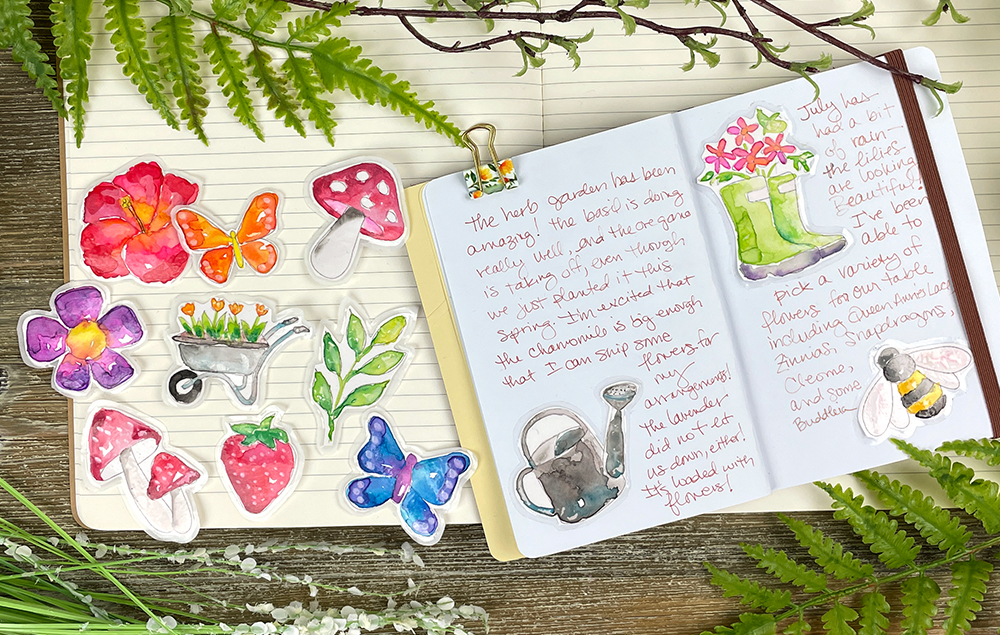 The herb garden has been
amazing! The basil is doing
really well, and the oregano
is taking off, even though
we just planted it this
spring. I'm excited that
the chamomile is big enough
that I can snip some
flowers for
my
arrangements!
The lavender
did not let
us down, either!
It's loaded with
flowers!
July has
had a bit
of rain—
the lilies
are looking
Beautiful!
I've been
able to
pick a variety of
flowers for our table
including Queen Ann's Lace,
Zinnas, Snapdragons,
Cleome,
and some
Buddleia